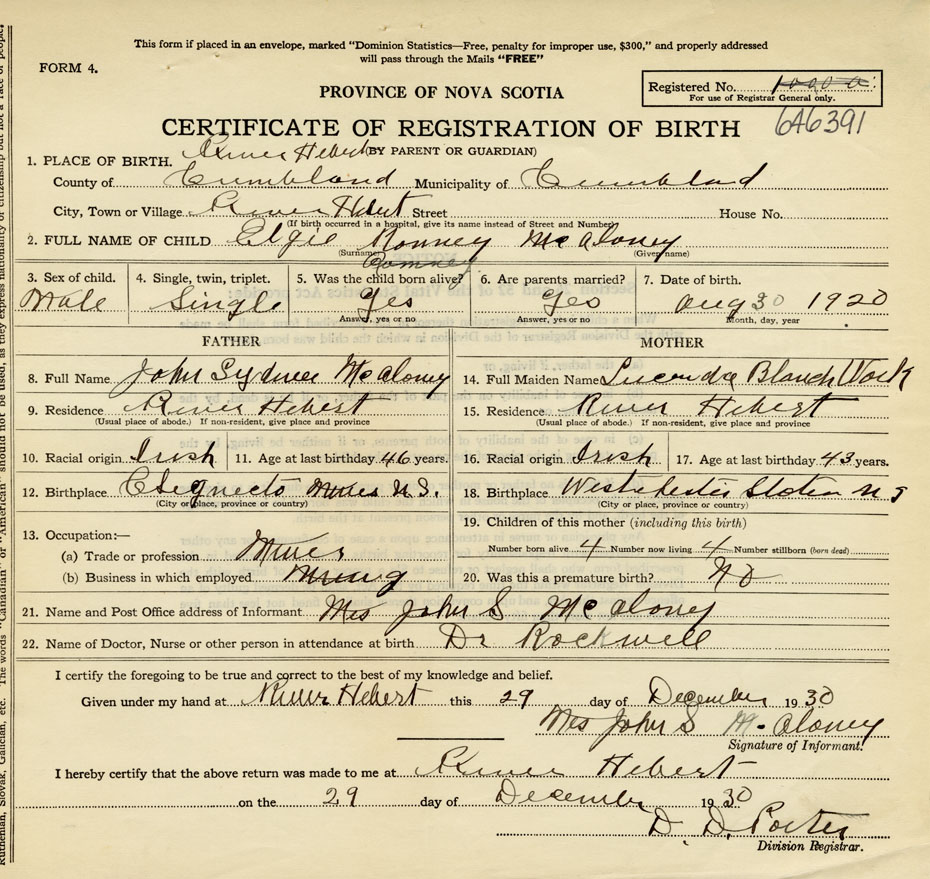 This form if placed in an envelope, marked "Dominion Statistics—Free, penalty for improper use, $300," and properly addressed
will pass through the Mails "FREE"
FORM 4.
Registered No.
For use of Registrar General only.
PROVINCE OF NOVA SCOTIA
646391
CERTIFICATE OF REGISTRATION OF BIRTH
River Hebert (BY PARENT OR GUARDIAN)
1. PLACE OF BIRTH.
County of Cumbland Municipality of Cumbland
City, Town or Village River Hebert Street House No.
(If birth occurred in a hospital, give its name instead of Street and Number)
2. FULL NAME OF CHILD Elgie Romney McAloney
(Surname) (Given name)
Romney
3. Sex of child. 4. Single, twin, triplet. 5. Was the child born alive? 6. Are parents married? 7. Date of birth.
Male Single Yes Yes Aug 30 1920
Answer, yes or no Answer, yes or no Month, day, year
FATHER MOTHER
8. Full Name John Sydner McAloney 14. Full Maiden Name Lucenda Blanch Work
9. Residence River Hebert 15. Residence River Hebert
(Usual place of abode.) If non-resident, give place and province (Usual place of abode.) If non-resident, give place and province
10. Racial origin Irish 11. Age at last birthday 46 years. 16. Racial origin Irish 17. Age at last birthday 43 years.
12. Birthplace Chignecto Mines N.S. 18. Birthplace Westchester Station N S
(City or place, province or country) (City or place, province or country)
19. Children of this mother (including this birth)
13. Occupation:—
(a) Trade or profession Miner Number born alive 4 Number now living 4 Number stillborn (born dead)
(b) Business in which employed Mining 20. Was this a premature birth? No
21. Name and Post Office address of Informant Mrs John S McAloney
22. Name of Doctor, Nurse or other person in attendance at birth Dr Rockwell
I certify the foregoing to be true and correct to the best of my knowledge and belief.
Given under my hand at River Hebert this 29 day of December 1930
Mrs John S McAloney
Signature of Informant.
I hereby certify that the above return was made to me at River Hebert
on the 29 day of December 1930
D. D. Porter
Division Registrar.